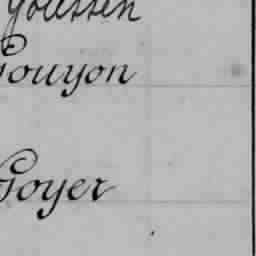 Goussen
Gouyon
Goyer